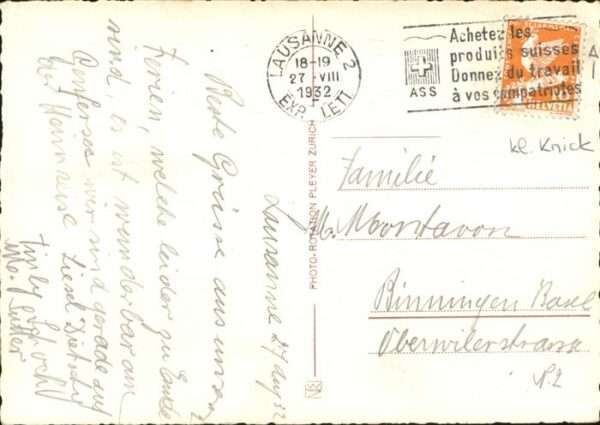 LAUSANNE 2
18-19
27 VIII
1932
EXP. LETT
Achetez les
produits suisses
Donnez du travail
à vos compatriotes
ASS
HELVETIA
kl. Knick
Familie
M. Montavon
Binningen Basel
Oberwilerstrasse
PHOTO-ROTATION PLEYER ZURICH
Lausanne 27 Aug 32
Beste Grüsse aus unsern
Ferien, welche leider zu Ende
sind, es ist wunderbar am
wir sind gerade auf
der Heimreise Liesel